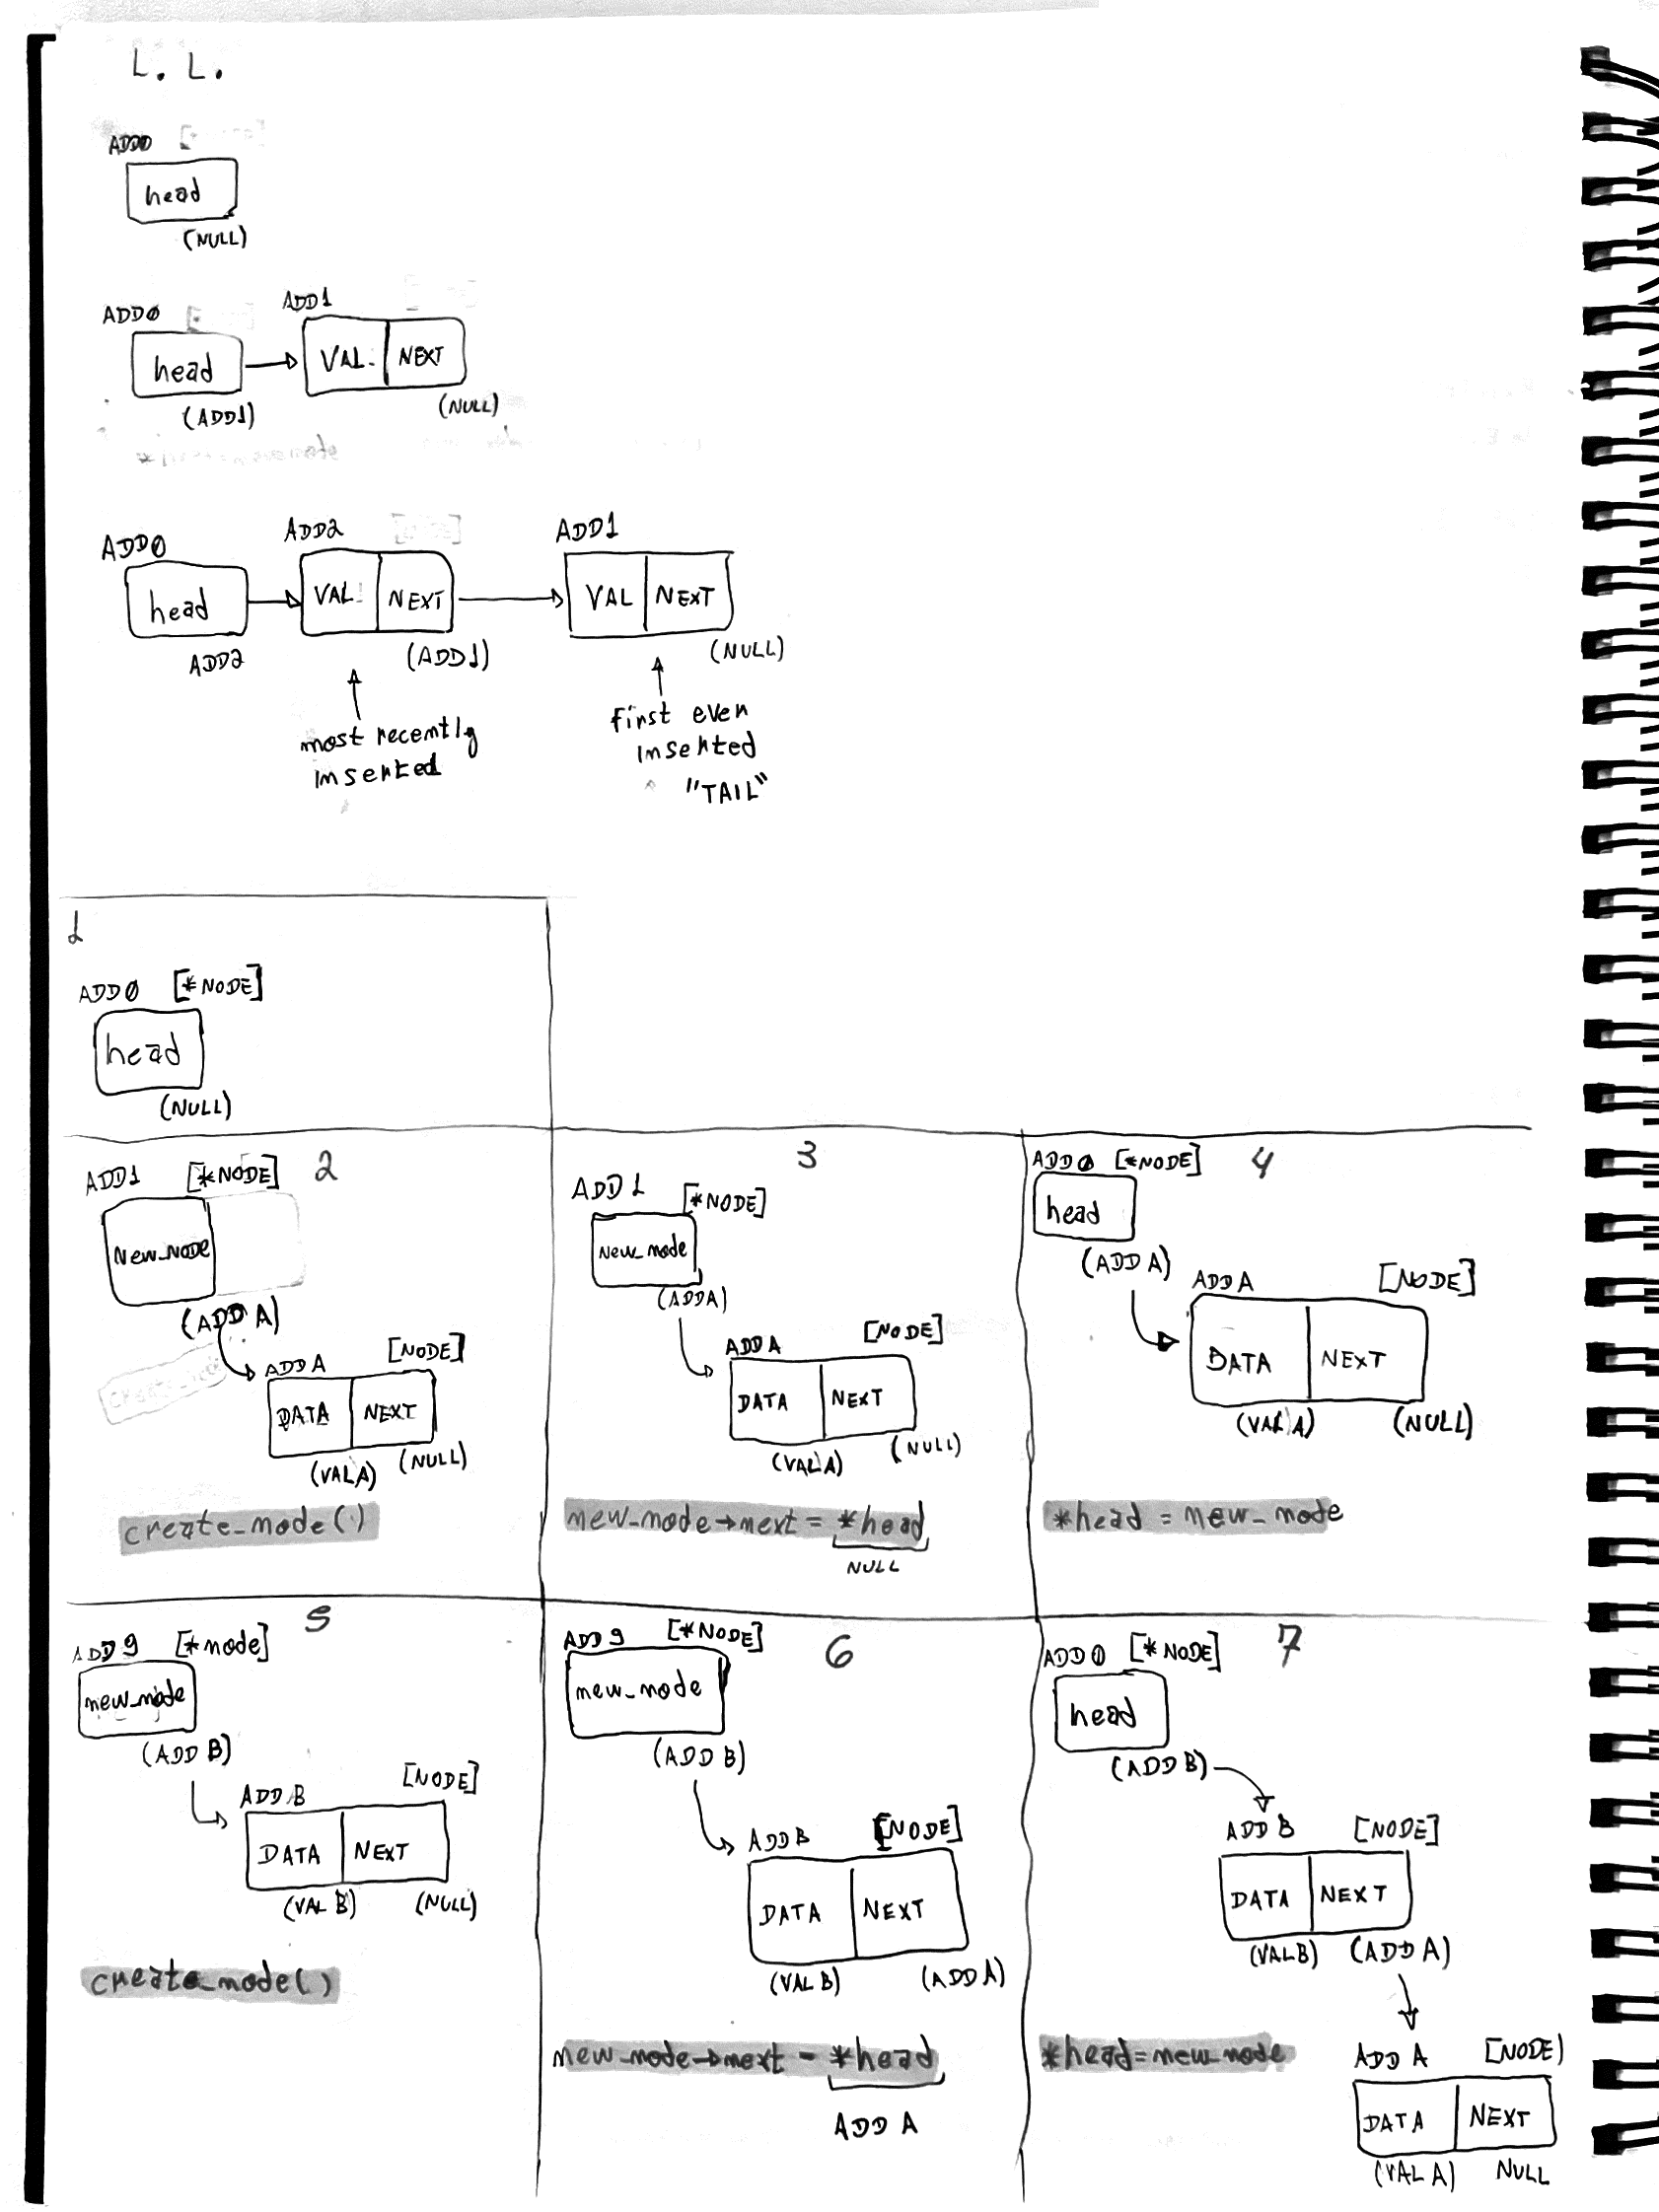 L. L.
ADD0
head
(NULL)
ADD0 ADD1
head VAL NEXT
(ADD1) (NULL)
ADD0 ADD2 ADD1
head VAL NEXT VAL NEXT
ADD2 (ADD1) (NULL)
most recently
inserted
first ever
inserted
"TAIL"
1
ADD0 [*NODE]
head
(NULL)
2
ADD1 [*NODE]
New_NODE
(ADD A)
ADD A [NODE]
DATA NEXT
(VAL A) (NULL)
create_node()
3
ADD1 [*NODE]
New_node
(ADDA)
ADD A [NODE]
DATA NEXT
(VAL A) (NULL)
new_node→next = *head
NULL
4
ADD0 [*NODE]
head
(ADD A)
ADD A [NODE]
DATA NEXT
(VAL A) (NULL)
*head = new_node
5
ADD9 [*node]
new_node
(ADD B)
ADD B [NODE]
DATA NEXT
(VAL B) (NULL)
create_node()
6
ADD9 [*NODE]
new_node
(ADD B)
ADD B [NODE]
DATA NEXT
(VAL B) (ADD A)
new_node→next = *head
ADD A
7
ADD0 [*NODE]
head
(ADD B)
ADD B [NODE]
DATA NEXT
(VAL B) (ADD A)
*head=new_node
ADD A [NODE]
DATA NEXT
(VAL A) NULL